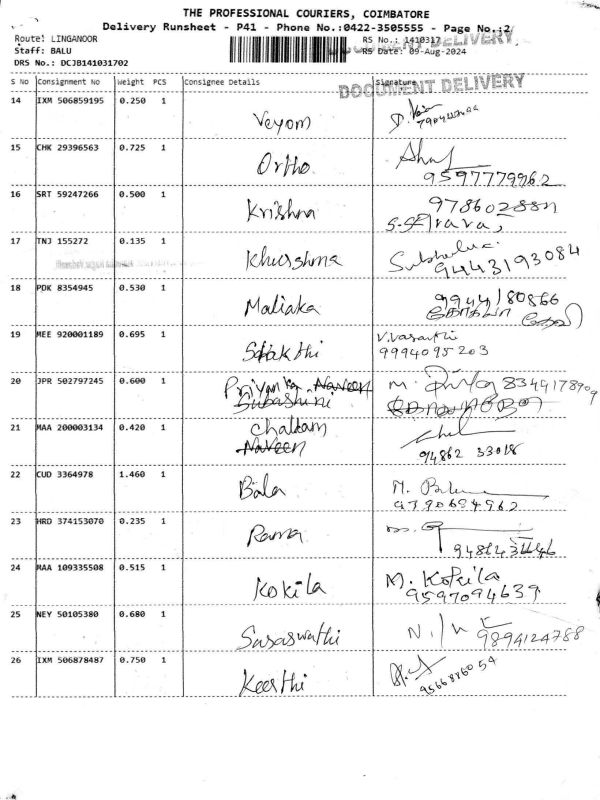 THE PROFESSIONAL COURIERS, COIMBATORE
Delivery Runsheet - P41 - Phone No.:0422-3505555 - Page No.:2
Route: LINGANOOR
RS No.: 1410317
DOCUMENT DELIVERY
Staff: BALU
RS Date: 09-Aug-2024
DRS No.: DCJB141031702
S No Consignment No Weight PCS Consignee Details Signature
DOCUMENT DELIVERY
14 IXM 506859195 0.250 1
Veyom
15 CHK 29396563 0.725 1
Ortho
9597779962
16 SRT 59247266 0.500 1
Krishna
17 TNJ 155272 0.135 1
Khurshma
9443193084
18 PDK 8354945 0.530 1
Maliaka
9944180866
19 MEE 920001189 0.695 1
Sakthi
V.Vasanthi
9994095203
20 JPR 502797245 0.600 1
Priyanka Naveen
Subashini
M. 8344178909
21 MAA 200003134 0.420 1
Chalkam
Naveen
94862 33018
22 CUD 3364978 1.460 1
Bala
M. Bala
9790694962
23 HRD 374153070 0.235 1
Rama
24 MAA 109335508 0.515 1
Kokila
M. Kokila
9597094639
25 NEY 50105380 0.680 1
Saraswathi
9894124788
26 IXM 506878487 0.750 1
Keerthi
9566886054